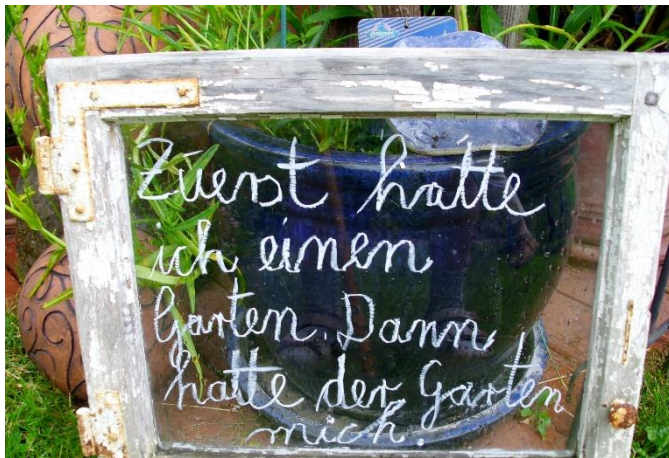 Zuerst hatte
ich einen
Garten. Dann
hatte der Garten
mich.